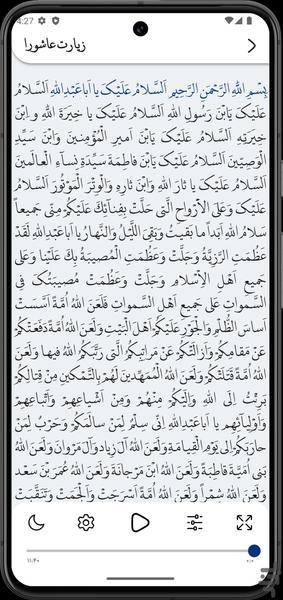 4:27
زیارت عاشورا
بِسْمِ اللّٰهِ الرَّحْمٰنِ الرَّحِیمِ اَلسَّلامُ عَلَیْکَ یا اَباعَبْدِاللّٰهِ اَلسَّلامُ
عَلَیْکَ یَابْنَ رَسُولِ اللّٰهِ اَلسَّلامُ عَلَیْکَ یا خِیَرَةَ اللّٰهِ و َابْنَ
خِیَرَتِهِ اَلسَّلامُ عَلَیْکَ یَابْنَ اَمیرِ الْمُؤْمِنینَ وَابْنَ سَیِّدِ
الْوَصِیّینَ اَلسَّلامُ عَلَیْکَ یَابْنَ فاطِمَةَ سَیِّدَةِ نِساَّءِ الْعالَمینَ
اَلسَّلامُ عَلَیْکَ یا ثارَ اللّٰهِ وَابْنَ ثارِهِ وَالْوِتْرَ الْمَوْتُورَ اَلسَّلامُ
عَلَیْکَ وَعَلَی الاْرْواحِ الَّتی حَلَّتْ بِفِناَّئِکَ عَلَیْکُمْ مِنّی جَمیعاً
سَلامُ اللّٰهِ اَبَداً ما بَقیتُ وَبَقِیَ اللَّیْلُ وَالنَّهارُ یا اَباعَبْدِاللّٰهِ لَقَدْ
عَظُمَتِ الرَّزِیَّةُ وَجَلَّتْ وَعَظُمَتِ الْمُصیبَةُ بِکَ عَلَیْنا وَعَلی
جَمیعِ اَهْلِ الاْسْلامِ وَجَلَّتْ وَعَظُمَتْ مُصیبَتُکَ فِی
السَّمواتِ عَلی جَمیعِ اَهْلِ السَّمواتِ فَلَعَنَ اللّٰهُ اُمَّةً اَسَّسَتْ
اَساسَ الظُّلْمِ وَالْجَوْرِ عَلَیْکُمْ اَهْلَ الْبَیْتِ وَلَعَنَ اللّٰهُ اُمَّةً دَفَعَتْکُمْ
عَنْ مَقامِکُمْ وَاَزالَتْکُمْ عَنْ مَراتِبِکُمُ الَّتی رَتَّبَکُمُ اللّٰهُ فیها وَلَعَنَ
اللّٰهُ اُمَّةً قَتَلَتْکُمْ وَلَعَنَ اللّٰهُ الْمُمَهِّدینَ لَهُمْ بِالتَّمْکینِ مِنْ قِتالِکُمْ
بَرِئْتُ اِلَی اللّٰهِ وَاِلَیْکُمْ مِنْهُمْ وَمِنْ اَشْیاعِهِمْ وَاَتْباعِهِمْ
وَاَوْلِیاَّئِهِم یا اَباعَبْدِاللّٰهِ اِنّی سِلْمٌ لِمَنْ سالَمَکُمْ وَحَرْبٌ لِمَنْ
حارَبَکُمْ اِلی یَوْمِ الْقِیامَةِ وَلَعَنَ اللّٰهُ آلَ زِیادٍ وَآلَ مَرْوانَ وَلَعَنَ اللّٰهُ
بَنی اُمَیَّةَ قاطِبَةً وَلَعَنَ اللّٰهُ ابْنَ مَرْجانَةَ وَلَعَنَ اللّٰهُ عُمَرَ بْنَ سَعْدٍ
وَلَعَنَ اللّٰهُ شِمْراً وَلَعَنَ اللّٰهُ اُمَّةً اَسْرَجَتْ وَاَلْجَمَتْ وَتَنَقَّبَتْ